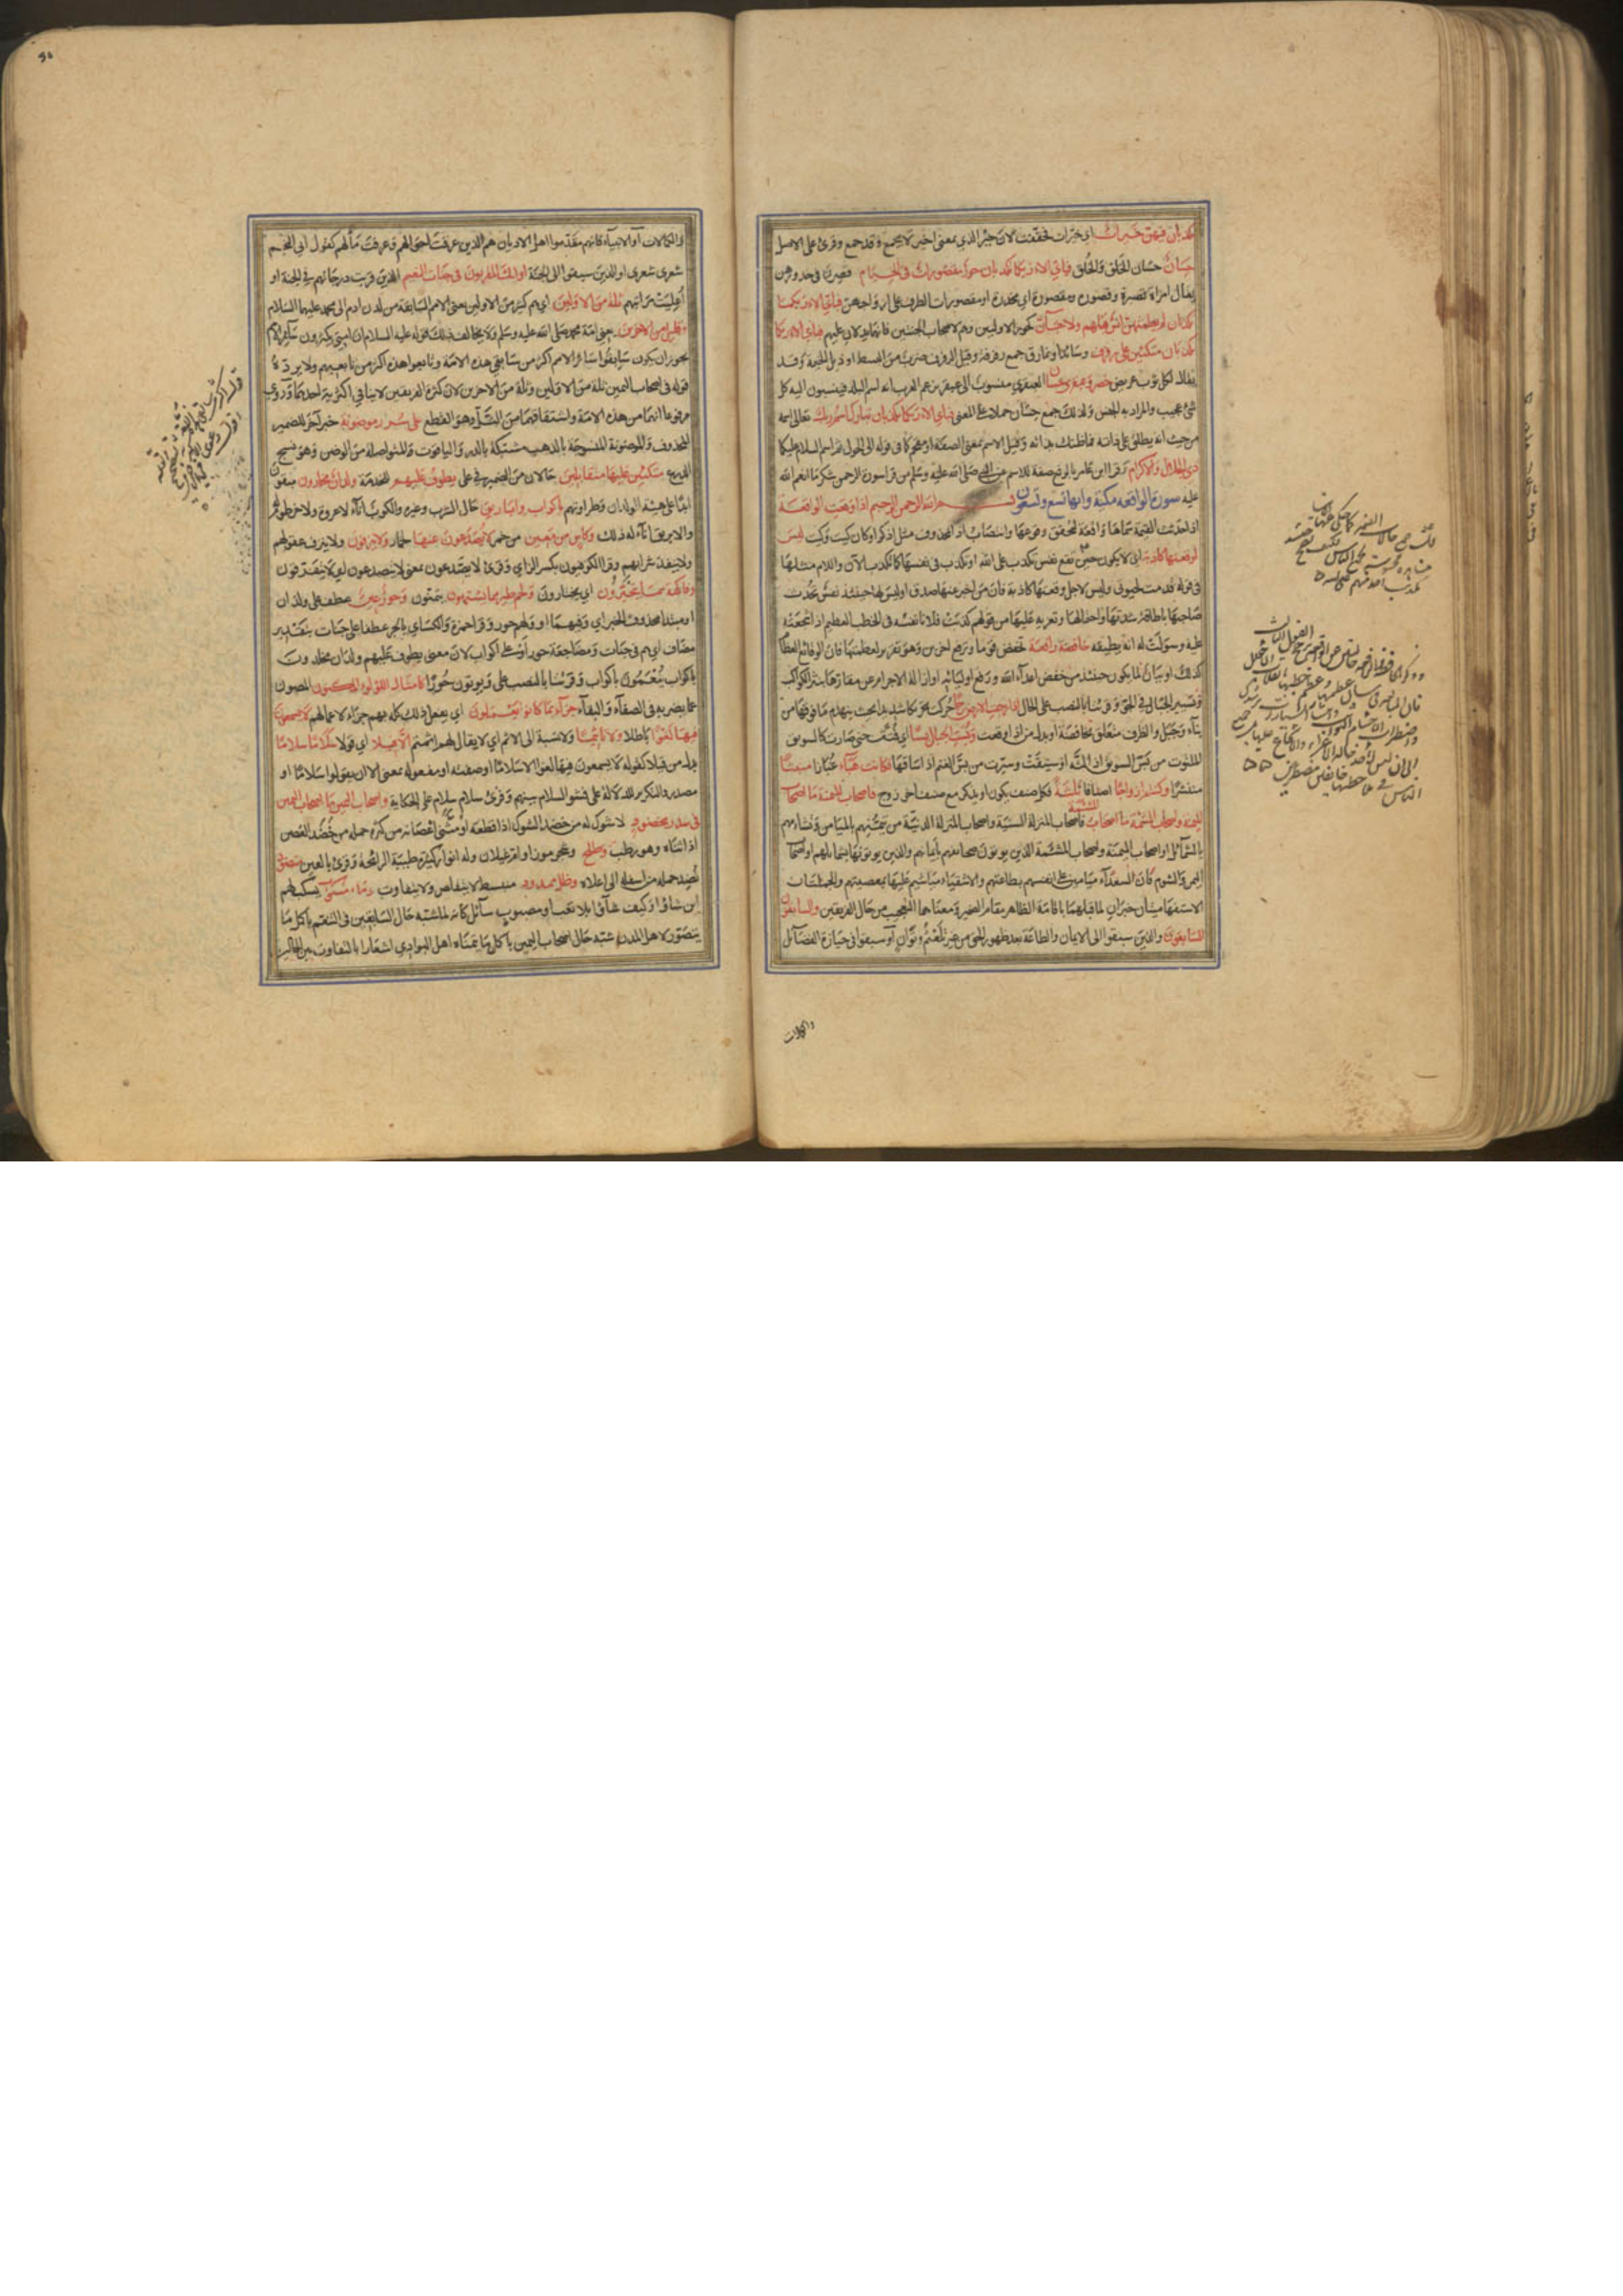 تكذبان فيهن خيرات اي خيرات فخففت لان خير الذي بمعنى اخير لا يجمع وقد جمع وقرئ على الاصل
حسان حسان الخلق والخلق فباي الاء ربكما تكذبان حور مقصورات في الخيام قصرن في خدورهن
يقال امراة قصيرة وقصورة ومقصورة اي مخدرة او مقصورات الطرف على ازواجهن فباي الاء ربكما
تكذبان لم يطمثهن انس قبلهم ولا جان كحور الاولين وهم لاصحاب الجنتين فانهما يدلان عليهم فباي الاء ربكما
تكذبان متكئين على رفرف وسائد او نمارق جمع رفرفة وقيل الرفرف ضرب من البسط او ذيل الخيمة وقد
يقال لكل ثوب عريض خضر وعبقري حسان العبقري منسوب الى عبقر تزعم العرب انه اسم البلد فينسبون اليه كل
شئ عجيب والمراد به الجنس ولذلك جمع حسان حملا على المعنى فباي الاء ربكما تكذبان تبارك اسم ربك تعالى اسمه
من حيث انه يطلق على ذاته فما ظنك بذاته وقيل الاسم بمعنى الصفة او مقحم كما في قوله الى الحول ثم اسم السلام عليكما
ذي الجلال والاكرام وقرا ابن عامر بالرفع صفة للاسم عن النبي صلى الله عليه وسلم من قرا سورة الرحمن شكر ما انعم الله
عليه سورة الواقعة مكية وايها تسع وتسعون بسم الله الرحمن الرحيم اذا وقعت الواقعة
اذا حدثت القيمة سماها واقعة لتحقق وقوعها وانتصاب اذا بمحذوف مثل اذكر او كان كيت وكيت ليس
لوقعتها كاذبة اي لا يكون حين تقع نفس تكذب على الله او تكذب في نفسها كما تكذب الان واللام مثلها
في قوله قدمت لحيوتي وليس لاجل وقعتها كاذبة فان من اخبر عنها صدق او ليس لها حينئذ نفس تحدث
صاحبها باطاقة شدتها واحتمالها وتغريه عليها من قولهم كذبت فلانا نفسه في الخطب العظيم اذا شجعته
عليه وسولت له انه يطيقه خافضة رافعة تخفض قوما وترفع اخرين وهو تقرير لعظمتها فان الوقائع العظام
كذلك او بيان لما يكون حينئذ من خفض اعداء الله ورفع اوليائه او ازالة الاجرام عن مقارها بنثر الكواكب
وتسيير الجبال في الجو وقرئتا بالنصب على الحال اذا رجت الارض رجا حركت تحريكا شديدا بحيث ينهدم ما فوقها من
بناء وجبل والظرف متعلق بخافضة او بدل من اذا وقعت وبست الجبال بسا اي فتتت حتى صارت كالسويق
الملتوت من بس السويق اذا لته او سيقت وسيرت من بس الغنم اذا ساقها فكانت هباء غبارا منبثا
منتشرا وكنتم ازواجا اصنافا ثلثة فكل صنف يكون او يذكر مع صنف اخر زوج فاصحاب الميمنة ما اصحاب
الميمنة واصحاب المشئمة ما اصحاب المشئمة فاصحاب المنزلة السنية واصحاب المنزلة الدنية من تيمنهم بالميامن وتشاؤمهم
بالشمائل او اصحاب الميمنة واصحاب المشئمة الذين يؤتون صحائفهم بايمانهم والذين يؤتونها بشمائلهم او اصحاب
اليمن والشوم فان السعداء ميامين على انفسهم بطاعتهم والاشقياء مشائيم عليها بمعصيتهم والجملتان
الاستفهاميتان خبران لما قبلهما باقامة الظاهر مقام الضمير ومعناهما التعجيب من حال الفريقين والسابقون
السابقون والذين سبقوا الى الايمان والطاعة بعد ظهور الحق من غير تلعثم وتوان او سبقوا في حيازة الفضائل
والكمالات
والكمالات او الانبياء فانهم مقدموا اهل الاديان هم الذين عرفت حالهم وعرفت مآلهم كقول ابي النجم
شعري شعري او الذين سبقوا الى الجنة اولئك المقربون في جنات النعيم الذين قربت درجاتهم في الجنة او
اعليت مراتبهم ثلة من الاولين اي هم كثير من الاولين يعني الامم السابقة من لدن ادم الى محمد عليهما السلام
وقليل من الاخرين يعني امة محمد صلى الله عليه وسلم ولا يخالف ذلك قوله عليه السلام ان امتي يكثرون سائر الامم
لجواز ان يكون سابقوا سائر الامم اكثر من سابقي هذه الامة وتابعوا هذه اكثر من تابعيهم ولا يرده
قوله في اصحاب اليمين ثلة من الاولين وثلة من الاخرين لان كثرة الفريقين لا ينافي اكثرية احدهما وروي
مرفوعا انهما من هذه الامة واشتقاقهما من الثل وهو القطع على سرر موضونة خبر اخر للضمير
المحذوف والموضونة المنسوجة بالذهب مشبكة بالدر والياقوت او المتواصلة من الوضن وهو نسج
الدرع متكئين عليها متقابلين حالان من الضمير في على يطوف عليهم للخدمة ولدان مخلدون مبقون
ابدا على هيئة الولدان وطراوتهم باكواب واباريق حال الشرب وغيره والكوب اناء لا عروة ولا خرطوم له
والابريق اناء له ذلك وكاس من معين من خمر لا يصدعون عنها خمار ولا ينزفون ولا ينزف عقولهم
ولا ينفد شرابهم وقرا الكوفيون بكسر الزاي وقرئ لا يصدعون بمعنى لا يتصدعون اي لا يتفرقون
وفاكهة مما يتخيرون اي يختارون ولحم طير مما يشتهون يتمنون وحور عين عطف على ولدان
او مبتدا محذوف الخبر اي وفيها او ولهم حور وقرا حمزة والكسائي بالجر عطفا على جنات بتقدير
مضاف اي هم في جنات ومصاحبة حور او على اكواب لان معنى يطوف عليهم ولدان مخلدون
باكواب ينعمون باكواب وقرئتا بالنصب على ويؤتون حورا كامثال اللؤلؤ المكنون المصون
عما يضر به في الصفاء والنقاء جزاء بما كانوا يعملون اي يفعل ذلك كله بهم جزاء لاعمالهم لا يسمعون
فيها لغوا باطلا ولا تاثيما ولا نسبة الى الاثم اي لا يقال لهم اثمتم الا قيلا اي قولا سلاما سلاما
بدل من قيلا كقوله لا يسمعون فيها لغوا الا سلاما او صفته او مفعوله بمعنى الا ان يقولوا سلاما او
مصدر والتكرير للدلالة على فشو السلام بينهم وقرئ سلام سلام على الحكاية واصحاب اليمين ما اصحاب اليمين
في سدر مخضود لا شوك له من خضد الشوك اذا قطعه او مثنى اغصانه من كثرة حمله من خضد الغصن
اذا ثناه وهو رطب وطلح وشجر موز او ام غيلان وله انوار كثيرة طيبة الرائحة وقرئ بالعين منضود
نضد حمله من اسفله الى اعلاه وظل ممدود منبسط لا يتقلص ولا يتفاوت وماء مسكوب يسكب لهم
اين شاؤا وكيف شاؤا بلا تعب او مصبوب سائل كانه لما شبه حال السابقين في التنعم باكمل ما
يتصور لاهل المدن شبه حال اصحاب اليمين باكمل ما يتمناه اهل البوادي اشعارا بالتفاوت بين الحالين